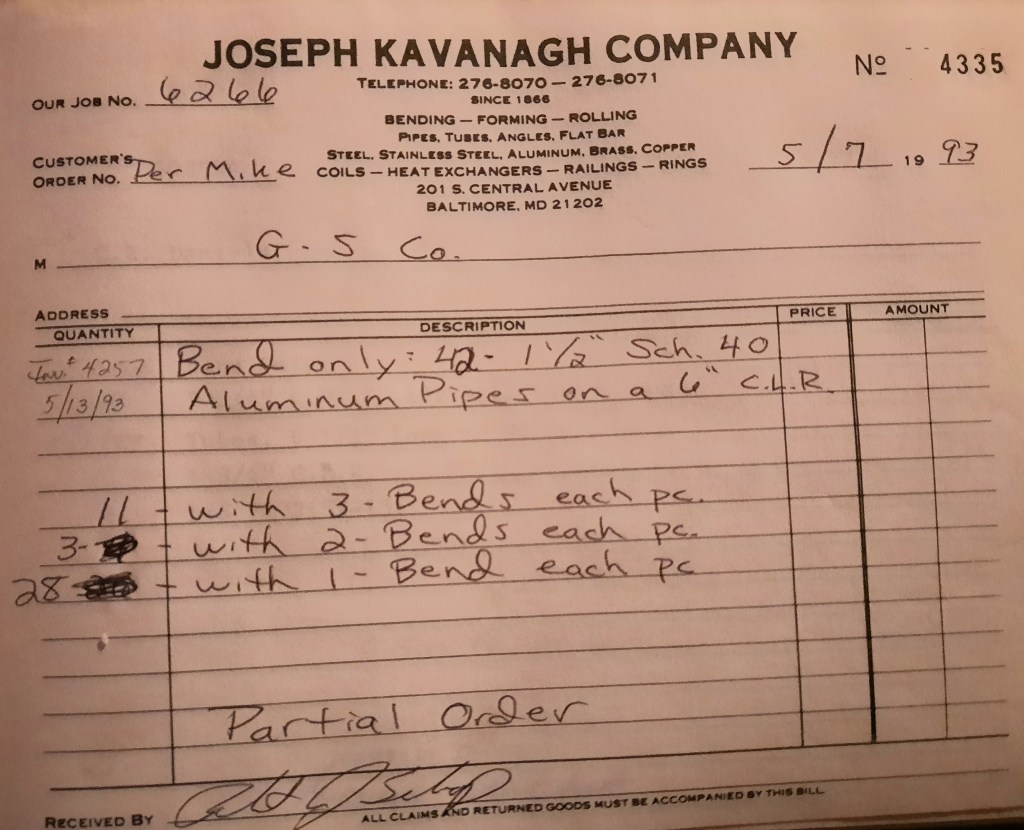 JOSEPH KAVANAGH COMPANY
No 4335
TELEPHONE: 276-8070 — 276-8071
SINCE 1866
OUR JOB NO. 6266
BENDING — FORMING — ROLLING
PIPES, TUBES, ANGLES, FLAT BAR
STEEL, STAINLESS STEEL, ALUMINUM, BRASS, COPPER
CUSTOMER'S ORDER NO. Per Mike
COILS — HEAT EXCHANGERS — RAILINGS — RINGS
5/7 19 93
201 S. CENTRAL AVENUE
BALTIMORE, MD 21202
M G-S Co.
ADDRESS
QUANTITY DESCRIPTION PRICE AMOUNT
Inv.# 4257 Bend only: 42- 1 1/2" Sch. 40
5/13/93 Aluminum Pipes on a 6" C.L.R.
11 - with 3-Bends each pc.
3- - with 2-Bends each pc.
28 - with 1-Bend each pc
Partial Order
RECEIVED BY
ALL CLAIMS AND RETURNED GOODS MUST BE ACCOMPANIED BY THIS BILL